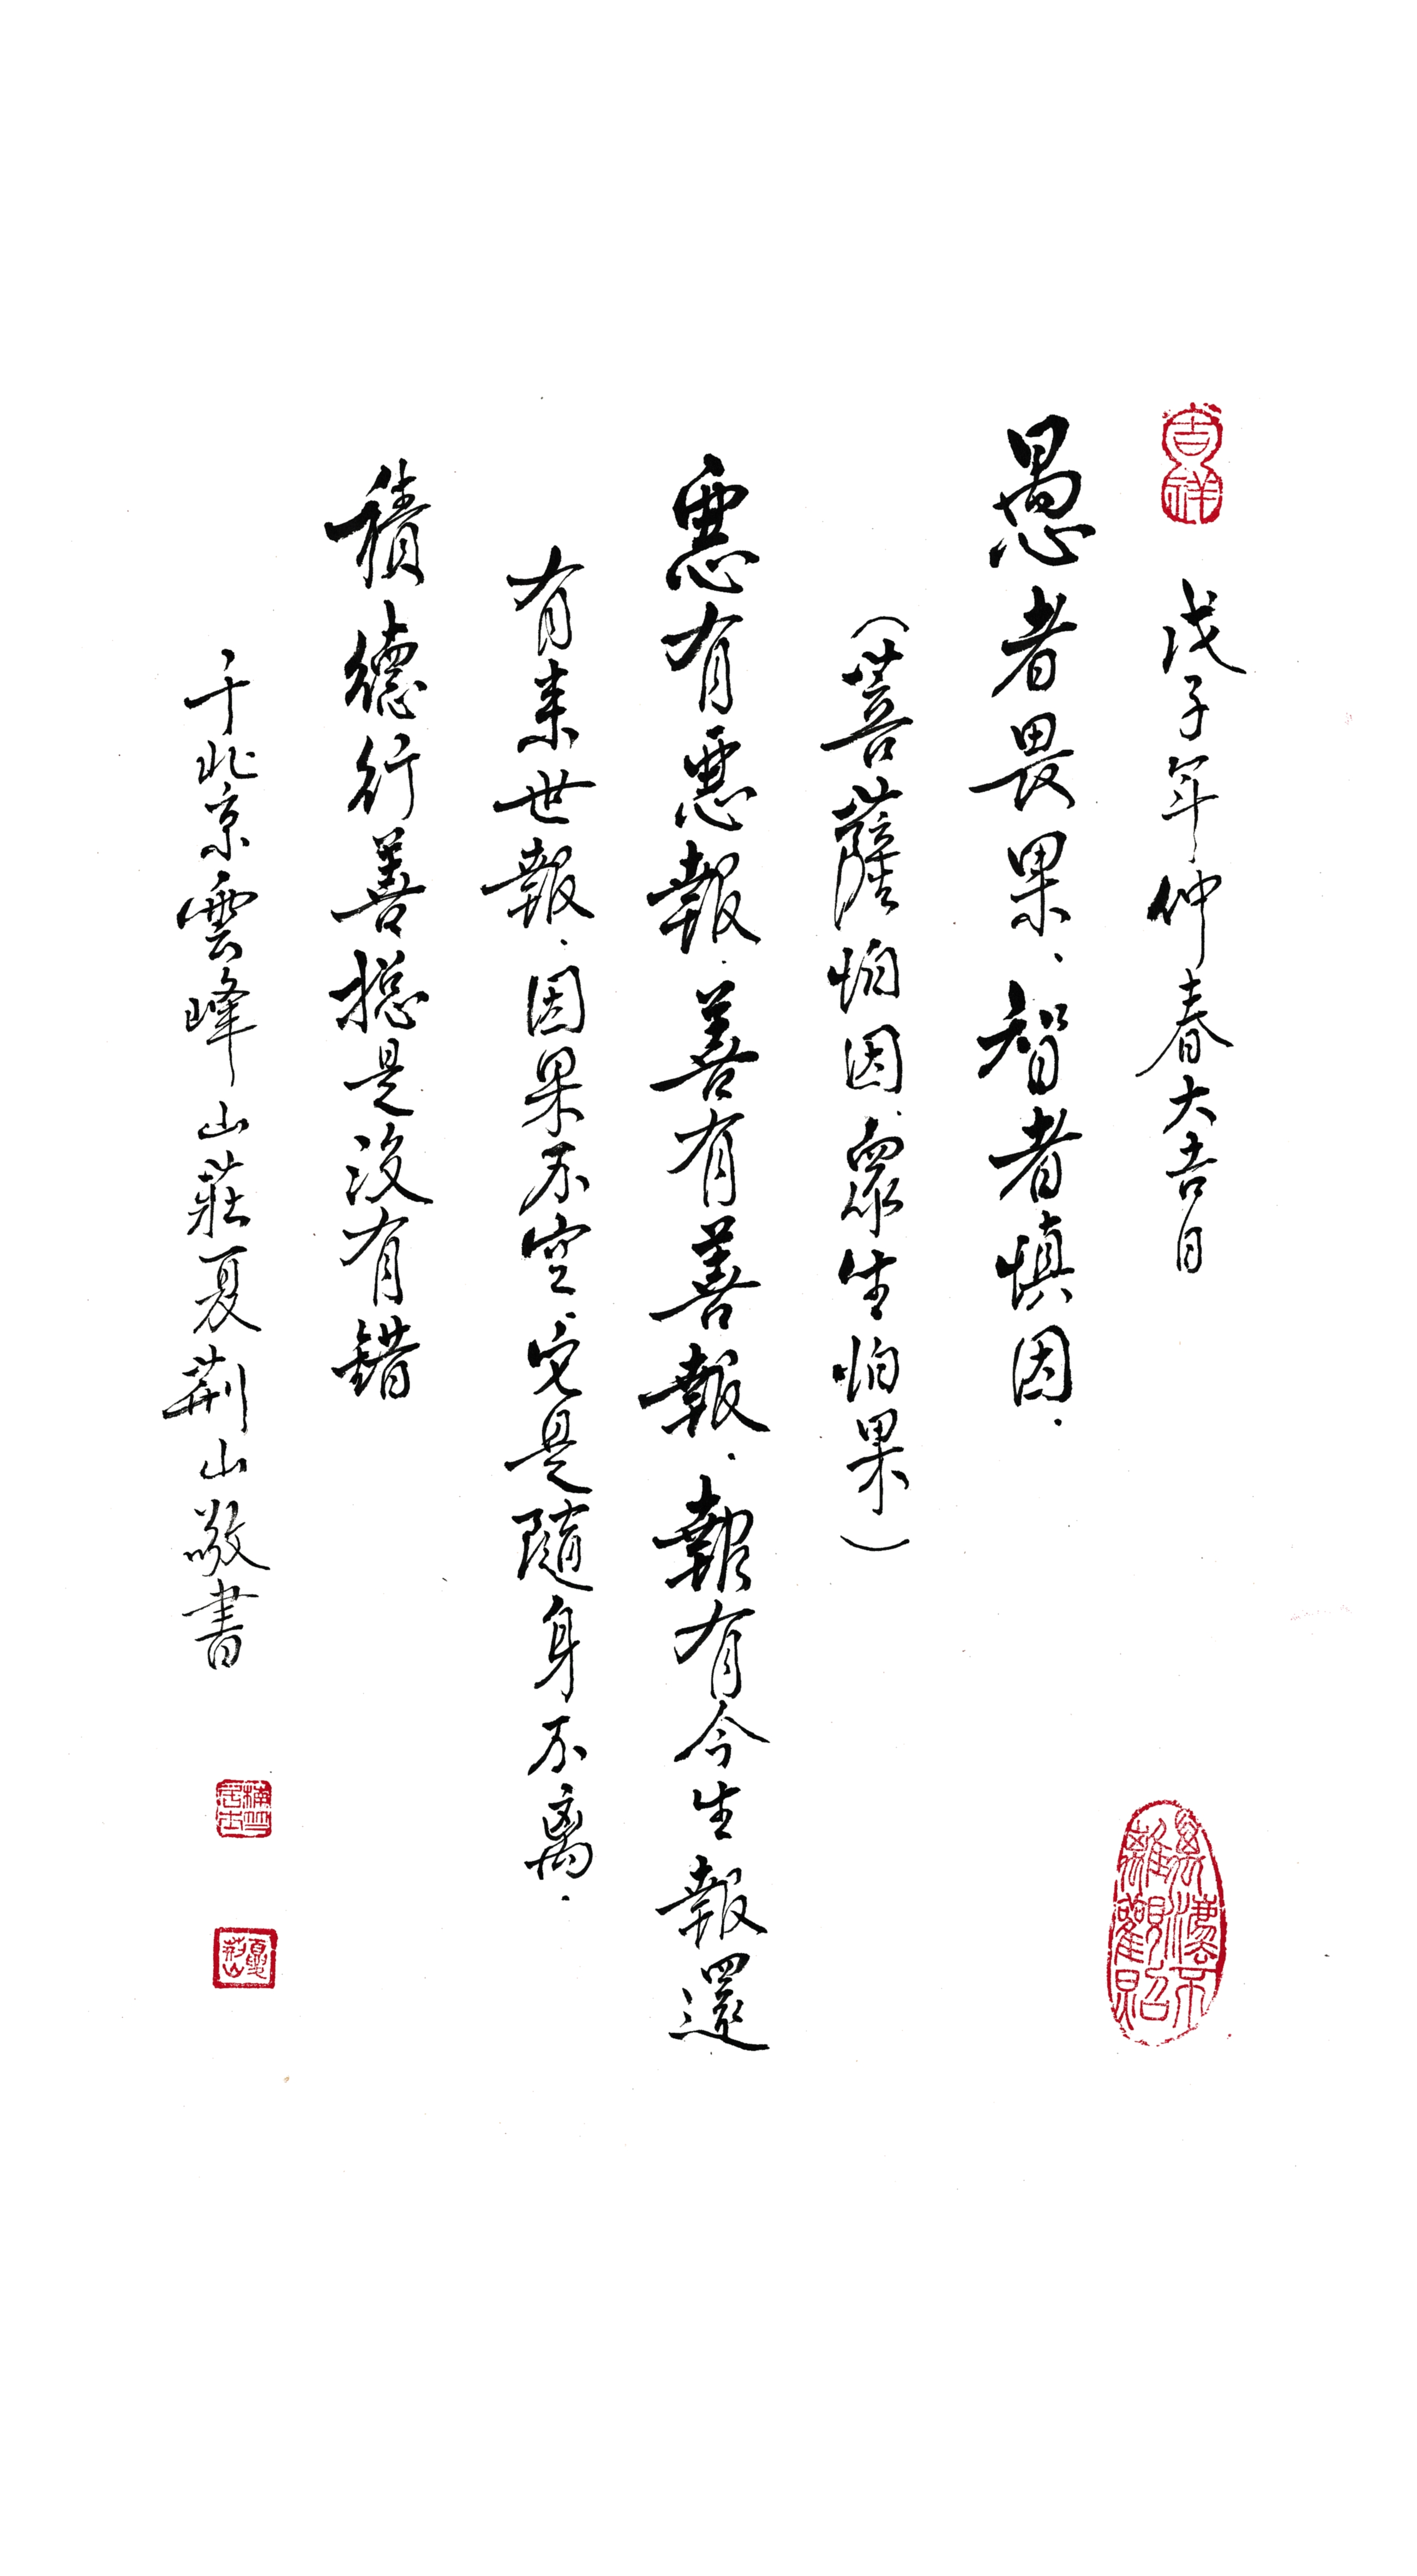 吉祥
戊子年仲春大吉日
愚者畏果、智者慎因.
（菩薩怕因.眾生怕果）
惡有惡報.善有善報.報有今生報還
有来世報.因果不空.它是隨身不离.
積德行善揔是沒有錯
于北京雲峰山莊夏荆山敬書
夏荆山